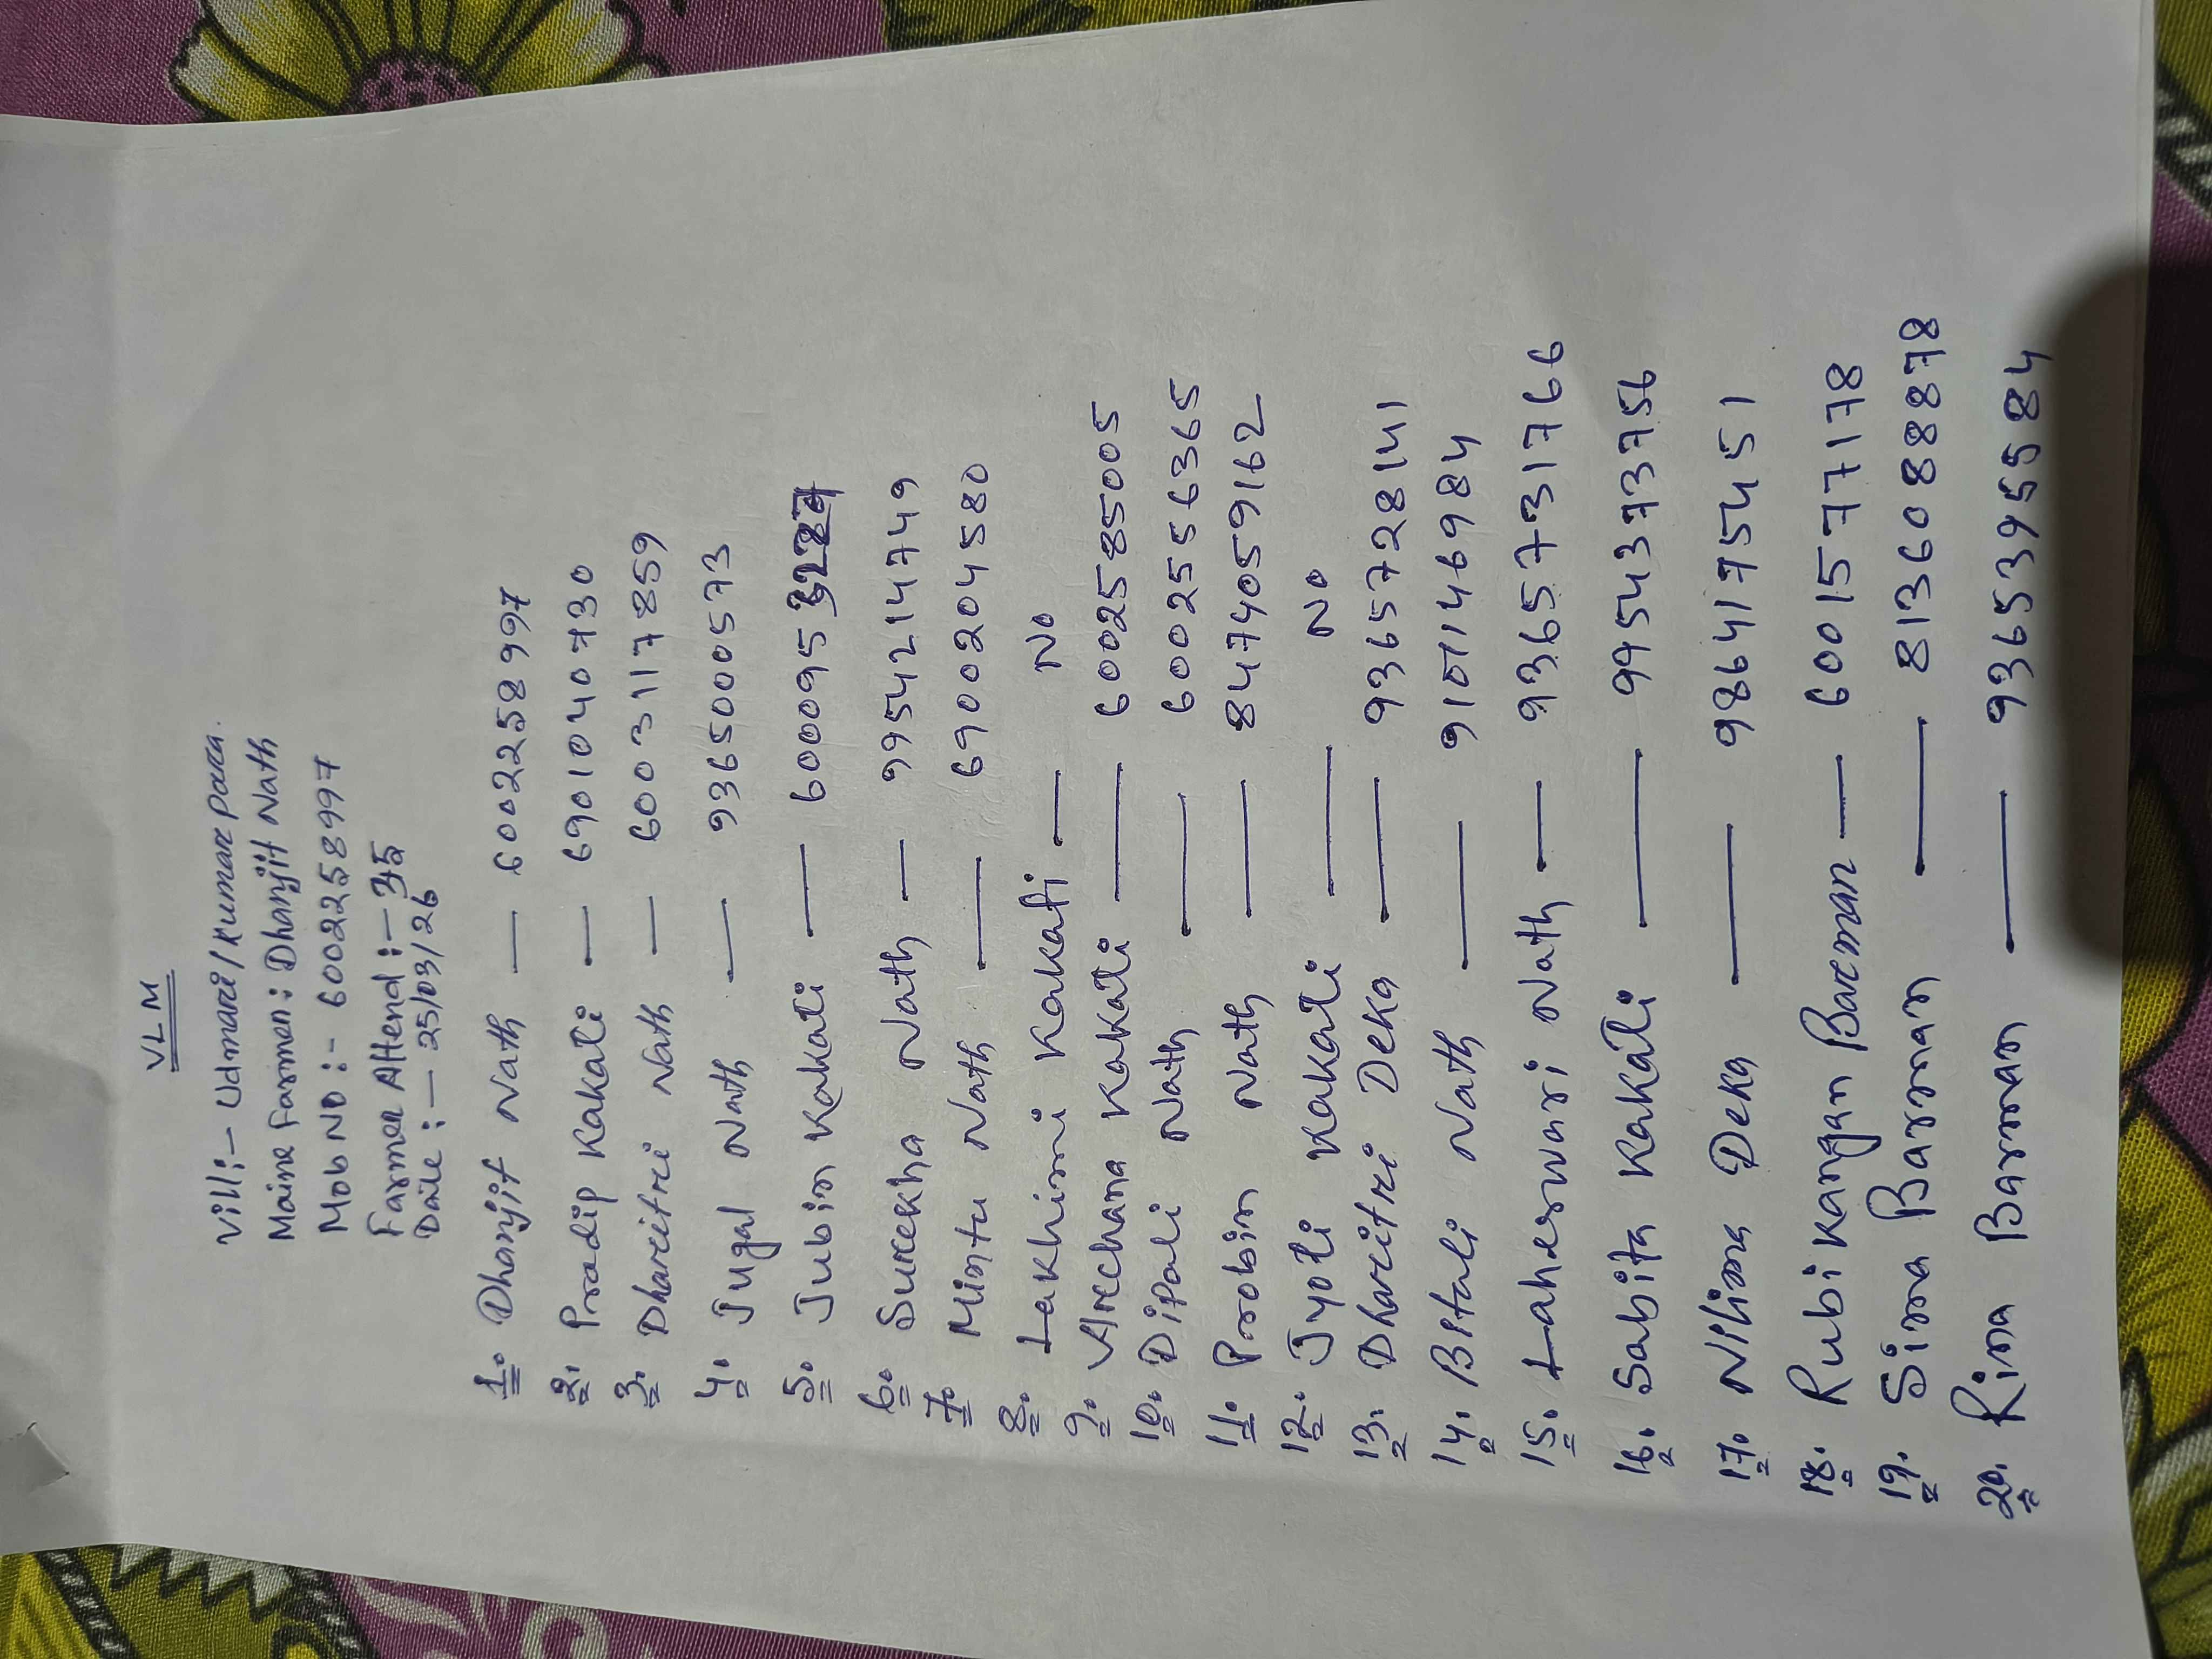 VLM
Vill:- Udmari/Kumar Para.
Maine Farmer: Dhanjit Nath
Mob NO:- 6002258997
Farmer Attend:- 35
Date:- 25/03/26
1. Dhanjit Nath — 6002258997
2. Pradip Kakati — 6901040730
3. Dharitri Nath — 6003117859
4. Jugal Nath — 9365000573
5. Jubin Kakati — 600095
6. Surekha Nath — 9954214749
7. Mintu Nath — 6900204580
8. Lakhimi Kakati — No
9. Kakati — 6002585005
10. Dipali Nath — 6002556365
11. Probin Nath — 8474059162
12. Jyoti Kakati — No
13. Dharitri Deka — 9365728141
14. Bitali Nath — 910146984
15. Laheswari Nath — 9365731766
16. Sabita Kakati — 9954373756
17. Nilima Deka — 9864175451
18. Rubi Kangan Barman — 6001577178
19. Sima Barman — 8136088878
20. Rina Barman — 9365395584